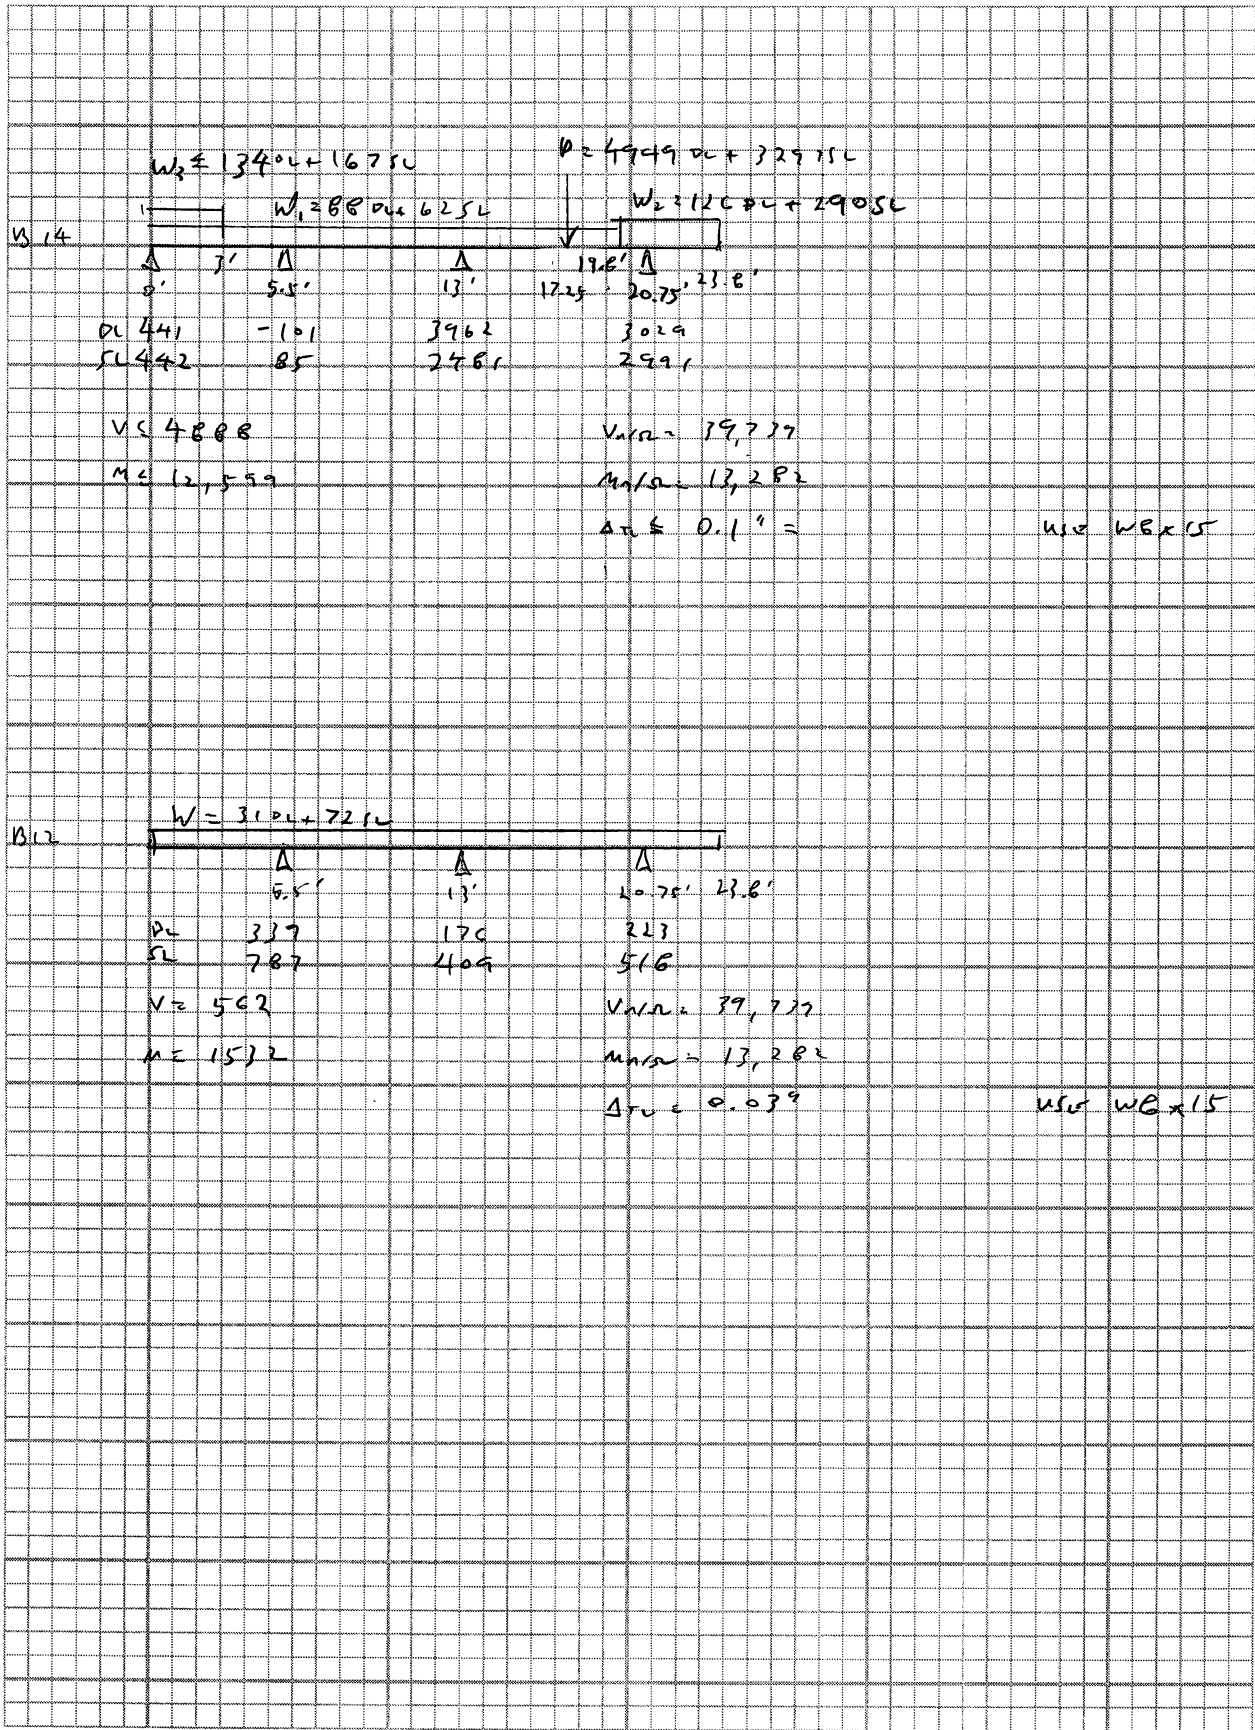 W₃ = 134 DL + 167 SL
P = 4949 DL + 3297 SL
W₁ = 88 DL + 62 SL
W₂ = 126 DL + 290 SL
B14
0' 3' 5.5' 13' 17.25 19.8' 20.75' 23.8'
DL 441 -101 3962 3029
SL 442 85 2481 2991
V = 4888
Vn/Ω = 39,739
M = 12,599
Mn/Ω = 13,282
ΔTL = 0.1" =
USE W8x15
W = 31 DL + 72 SL
B12
5.5' 13' 20.75' 23.8'
DL 339 176 223
SL 787 409 518
V = 562
Vn/Ω = 39,739
M = 1532
Mn/Ω = 13,282
ΔTL = 0.03"
USE W8x15